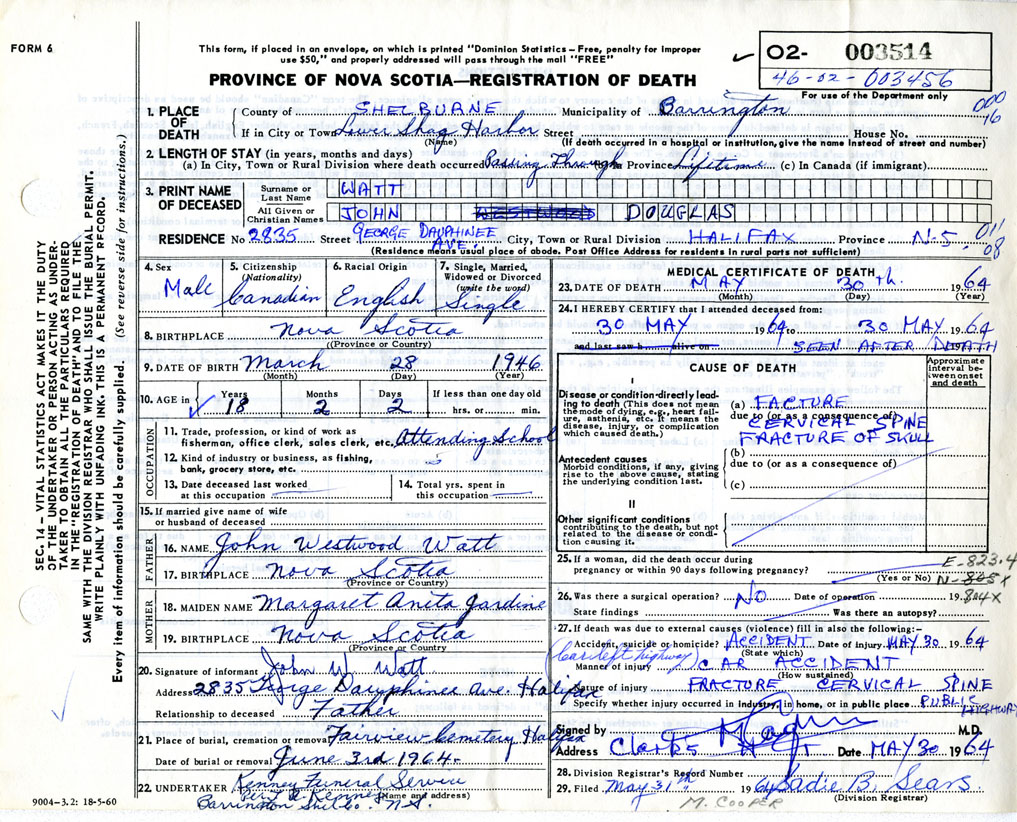 FORM 6
This form, if placed in an envelope, on which is printed "Dominion Statistics – Free, penalty for improper
use $50," and properly addressed will pass through the mail "FREE"
PROVINCE OF NOVA SCOTIA—REGISTRATION OF DEATH
O2- 003514
46-02-003456
For use of the Department only
SEC. 14 – VITAL STATISTICS ACT MAKES IT THE DUTY
OF THE UNDERTAKER OR PERSON ACTING AS UNDER-
TAKER TO OBTAIN ALL THE PARTICULARS REQUIRED
IN THE "REGISTRATION OF DEATH" AND TO FILE THE
SAME WITH THE DIVISION REGISTRAR WHO SHALL ISSUE THE BURIAL PERMIT.
WRITE PLAINLY WITH UNFADING INK. THIS IS A PERMANENT RECORD.
Every item of information should be carefully supplied. (See reverse side for instructions.)
1. PLACE OF DEATH
County of SHELBURNE Municipality of Barrington
If in City or Town Lower Shag Harbor Street House No.
(Name) (If death occurred in a hospital or institution, give the name instead of street and number)
2. LENGTH OF STAY (in years, months and days)
(a) In City, Town or Rural Division where death occurred Passing Through In Province Lifetime (c) In Canada (if immigrant)
3. PRINT NAME OF DECEASED
Surname or Last Name WATT
All Given or Christian Names JOHN WESTWOOD DOUGLAS
RESIDENCE No 2835 Street GEORGE DAUPHINEE AVE. City, Town or Rural Division HALIFAX Province N-S.
(Residence means usual place of abode. Post Office Address for residents in rural parts not sufficient)
01/08
4. Sex Male
5. Citizenship (Nationality) Canadian
6. Racial Origin English
7. Single, Married, Widowed or Divorced (write the word) Single
8. BIRTHPLACE Nova Scotia
(Province or Country)
9. DATE OF BIRTH March 28 1946
(Month) (Day) (Year)
10. AGE in Years 18 Months 2 Days 2 If less than one day old hrs. or min.
OCCUPATION
11. Trade, profession, or kind of work as
fisherman, office clerk, sales clerk, etc. Attending School
12. Kind of industry or business, as fishing,
bank, grocery store, etc.
13. Date deceased last worked
at this occupation
14. Total yrs. spent in
this occupation
15. If married give name of wife
or husband of deceased
FATHER
16. NAME John Westwood Watt
17. BIRTHPLACE Nova Scotia
(Province or Country)
MOTHER
18. MAIDEN NAME Margaret Anita Jardine
19. BIRTHPLACE Nova Scotia
(Province or Country)
20. Signature of informant John W. Watt
Address 2835 George Dauphinee Ave. Halifax
Relationship to deceased Father
21. Place of burial, cremation or removal Fairview Cemetery Halifax
Date of burial or removal June 3rd 1964.
22. UNDERTAKER Kenney Funeral Service
(Name and address)
Barrington N.S.
9004-3.2: 18-5-60
MEDICAL CERTIFICATE OF DEATH
23. DATE OF DEATH MAY 30th. 1964
(Month) (Day) (Year)
24. I HEREBY CERTIFY that I attended deceased from:
30 MAY 1964 to 30 MAY 1964
and last saw h alive on SEEN AFTER DEATH
CAUSE OF DEATH
Approximate interval between onset and death
I
Disease or condition directly leading to death (This does not mean the mode of dying, e.g., heart failure, asthenia, etc. It means the disease, injury, or complication which caused death.)
(a) FACTURE
due to (or as a consequence of)
CERVICAL SPINE
FRACTURE OF SKULL
Antecedent causes
Morbid conditions, if any, giving rise to the above cause, stating the underlying condition last.
(b)
due to (or as a consequence of)
(c)
II
Other significant conditions
contributing to the death, but not related to the disease or condition causing it.
25. If a woman, did the death occur during
pregnancy or within 90 days following pregnancy?
(Yes or No)
E-823.4
N-805X
804X
26. Was there a surgical operation? NO Date of operation 19
State findings Was there an autopsy?
27. If death was due to external causes (violence) fill in also the following:-
Accident, suicide or homicide? ACCIDENT Date of injury MAY 30 1964
(State which)
(Car left highway)
Manner of injury CAR ACCIDENT
(How sustained)
Nature of injury FRACTURE CERVICAL SPINE
Specify whether injury occurred in industry, in home, or in public place PUBLIC HIGHWAY
Signed by M.D.
Address Clark's Date MAY 30 1964
28. Division Registrar's Record Number
29. Filed May 31st 1964 Sadie B. Sears
(Division Registrar)
M. COOPER